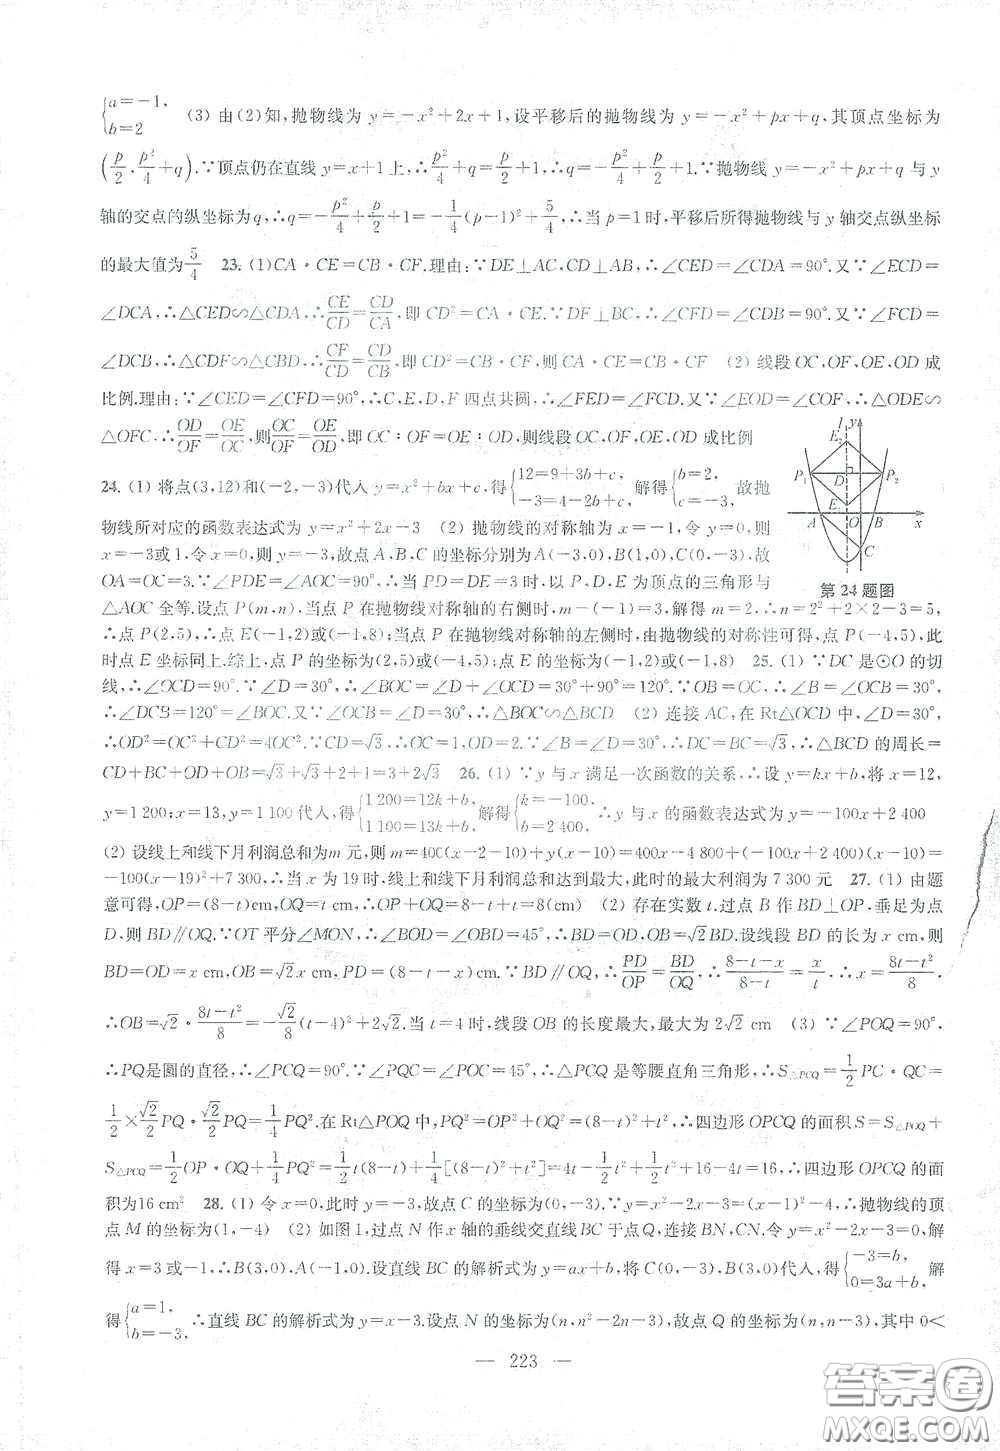 {a=-1, b=2 (3) 由(2)知,抛物线为 y=-x²+2x+1,设平移后的抛物线为 y=-x²+px+q,其顶点坐标为
(p/2, p²/4+q).∵顶点仍在直线 y=x+1 上,∴p²/4+q=p/2+1,∴q=-p²/4+p/2+1.∵抛物线 y=-x²+px+q 与 y
轴的交点的纵坐标为 q,∴q=-p²/4+p/2+1=-1/4(p-1)²+5/4,∴当 p=1 时,平移后所得抛物线与 y 轴交点纵坐标
的最大值为5/4 23. (1)CA·CE=CB·CF.理由:∵DE⊥AC,CD⊥AB,∴∠CED=∠CDA=90°.又∵∠ECD=
∠DCA,∴△CED∽△CDA,∴CE/CD=CD/CA,即 CD²=CA·CE.∵DF⊥BC,∴∠CFD=∠CDB=90°.又∵∠FCD=
∠DCB,∴△CDF∽△CBD,∴CF/CD=CD/CB,即 CD²=CB·CF,则 CA·CE=CB·CF (2) 线段 OC,OF,OE,OD 成
比例.理由:∵∠CED=∠CFD=90°,∴C,E,D,F 四点共圆,∴∠FED=∠FCD.又∵∠EOD=∠COF,∴△ODE∽
△OFC.∴OD/OF=OE/OC,则OC/OF=OE/OD,即 OC:OF=OE:OD,则线段 OC,OF,OE,OD 成比例
24. (1) 将点(3,12)和(-2,-3)代入 y=x²+bx+c,得{12=9+3b+c, -3=4-2b+c, 解得{b=2, c=-3, 故抛
物线所对应的函数表达式为 y=x²+2x-3 (2) 抛物线的对称轴为 x=-1,令 y=0,则
x=-3或1,令 x=0,则 y=-3,故点 A,B,C 的坐标分别为A(-3,0),B(1,0),C(0,-3),故
OA=OC=3.∵∠PDE=∠AOC=90°,∴当 PD=DE=3 时,以 P,D,E 为顶点的三角形与
△AOC 全等.设点 P(m,n),当点 P 在抛物线对称轴的右侧时,m-(-1)=3,解得 m=2.∴n=2²+2×2-3=5,
∴点 P(2,5),点 E(-1,2)或(-1,8);当点 P 在抛物线对称轴的左侧时,由抛物线的对称性可得,点 P(-4,5),此
时点 E 坐标同上.综上,点 P 的坐标为(2,5)或(-4,5);点 E 的坐标为(-1,2)或(-1,8) 25. (1) ∵DC 是⊙O 的切
线,∴∠OCD=90°.∵∠D=30°,∴∠BOC=∠D+∠OCD=30°+90°=120°.∵OB=OC,∴∠B=∠OCB=30°,
∴∠DCB=120°=∠BOC.又∵∠B=∠D=30°,∴△BOC∽△BCD (2) 连接 AC,在 Rt△OCD 中,∠D=30°,
∴OD²=OC²+CD²=4OC².∵CD=√3,∴OC=1,OD=2.∵∠B=∠D=30°,∴DC=BC=√3,∴△BCD 的周长=
CD+BC+OD+OB=√3+√3+2+1=3+2√3 26. (1) ∵y 与 x 满足一次函数的关系,∴设 y=kx+b,将 x=12,
y=1 200;x=13,y=1 100代入,得{1 200=12k+b, 1 100=13k+b, 解得{k=-100, b=2 400, ∴y 与 x 的函数表达式为 y=-100x+2 400
(2) 设线上和线下月利润总和为 m 元,则 m=400(x-2-10)+y(x-10)=400x-4 800+(-100x+2 400)(x-10)=
-100(x-19)²+7 300,∴当 x 为 19 时,线上和线下月利润总和达到最大,此时的最大利润为 7 300 元 27. (1) 由题
意可得,OP=(8-t)cm,OQ=t cm,∴OP+OQ=8-t+t=8(cm) (2) 存在实数 t.过点 B 作 BD⊥OP,垂足为点
D,则 BD∥OQ.∵OT 平分∠MON,∴∠BOD=∠OBD=45°,∴BD=OD,OB=√2BD.设线段 BD 的长为 x cm,则
BD=OD=x cm,OB=√2x cm,PD=(8-t-x)cm.∵BD∥OQ,∴PD/OP=BD/OQ,∴(8-t-x)/(8-t)=x/t.∴x=(8t-t²)/8.
∴OB=√2·(8t-t²)/8=-√2/8(t-4)²+2√2.当 t=4 时,线段 OB 的长度最大,最大为 2√2 cm (3) ∵∠POQ=90°,
∴PQ是圆的直径,∴∠PCQ=90°.∵∠PQC=∠POC=45°,∴△PCQ 是等腰直角三角形,∴S△PCQ=1/2PC·QC=
1/2×√2/2PQ·√2/2PQ=1/4PQ².在 Rt△POQ 中,PQ²=OP²+OQ²=(8-t)²+t²,∴四边形 OPCQ 的面积 S=S△POQ+
S△PCQ=1/2OP·OQ+1/4PQ²=1/2t(8-t)+1/4[(8-t)²+t²]=4t-1/2t²+1/2t²+16-4t=16,∴四边形 OPCQ 的面
积为16 cm² 28. (1) 令 x=0,此时 y=-3,故点 C 的坐标为(0,-3).∵y=x²-2x-3=(x-1)²-4,∴抛物线的顶
点 M 的坐标为(1,-4) (2) 如图 1,过点 N 作 x 轴的垂线交直线 BC 于点 Q,连接 BN,CN.令 y=x²-2x-3=0,解
得 x=3 或-1,∴B(3,0),A(-1,0).设直线 BC 的解析式为 y=ax+b,将 C(0,-3),B(3,0)代入,得{-3=b, 0=3a+b, 解
得{a=1, b=-3, ∴直线 BC 的解析式为 y=x-3.设点 N 的坐标为(n,n²-2n-3),故点 Q 的坐标为(n,n-3),其中 0<
l y
E₂
P₁ D P₂
E₁
A O B x
C
第 24 题图
— 223 —
答案圈
MXQE.COM